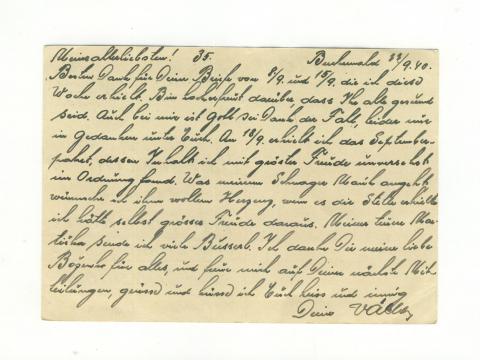 Meine allerliebsten! 35. Buchenwald 22/9.40.
Besten Dank für Deine Briefe von 8/9. und 15/9. die ich diese
Woche erhielt. Bin hocherfreut darüber, dass Ihr alle gesund
seid. Auch bei mir ist Gott sei Dank der Fall, leider nur
in Gedanken unter Euch. Am 18/9. erhielt ich das September-
paket, dessen Inhalt ich mit grösster Freude unversehrt
in Ordnung fand. Was meinen Schwager angeht
wünsche ich ihm vollem Herzen, wenn es die Stelle erhielte
ich hätte selbst grosse Freude daraus. Meiner teuren
sende ich viele Busserl. Ich danke Dir meine liebe
für alles, und freue mich auf Deine nächste Mit-
teilungen, grüsse und küsse ich Euch heiss und innig
Dein